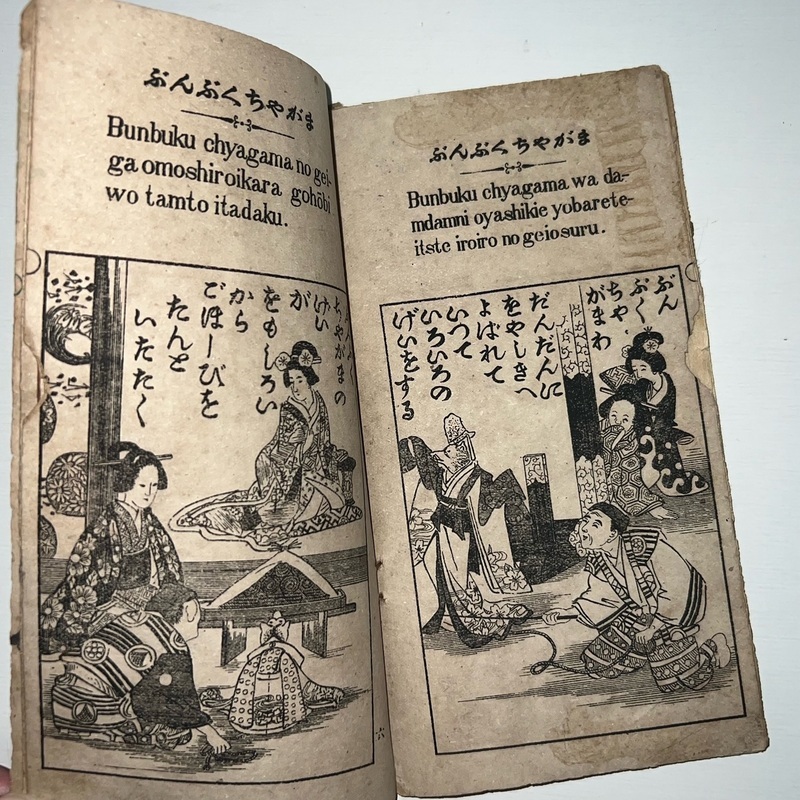 ぶんぶくちやがま
Bunbuku chyagama wa da-
mdamni oyashikie yobarete-
itste iroiro no geiosuru.
ぶん
ぶく
ちや
がまわ
だんだんに
をやしきへ
よばれて
いつて
いろいろの
げいをする
ぶんぶくちやがま
Bunbuku chyagama no gei-
ga omoshiroikara gohōbi
wo tamto itadaku.
ちやがまの
けい
が
をもしろい
から
ごほーびを
たんと
いたたく
六